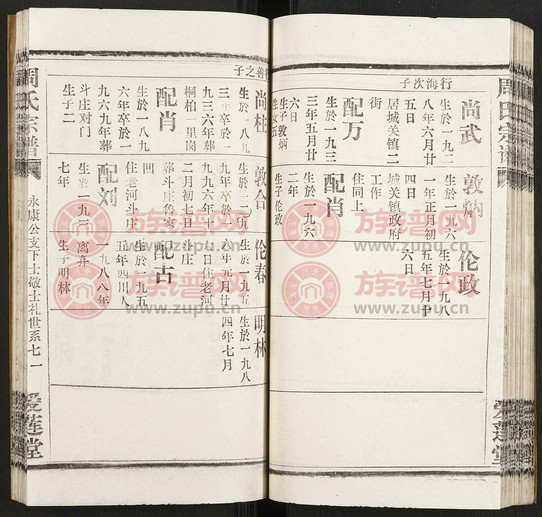 周氏宗谱
爱莲堂
行海次子
尚武
生於一九三
八年六月廿
五日
居城关镇二
街
配万
生於一九三
三年五月廿
六日
生子敦炳
敦炳
生於一九六
一年正月初
四日
城关镇政府
工作
住同上
配肖
生於一九六
二年
生子伦政
伦政
生於一九八
五年七月廿
六日
子之善
尚柱
生於一八九
九三六年葬
桐柏一里岗
配肖
生於一八九
六年卒於一
九六九年葬
斗庄对门
生子二
敦合
二月初七日
住老河斗庄
配刘
生於一九三
七年
伦春
生於一九五
六年元月廿
八日住老河
斗庄
配古
生於一九五
五年四川人
一九八八年
离弃
生子明林
明林
生於一九八
四年七月
周氏宗谱
永康公支下士敬士礼世系七一
爱莲堂
族谱网
www.zupu.cn
族谱网
www.zupu.cn
族谱网
www.zupu.cn
族谱网
www.zupu.cn